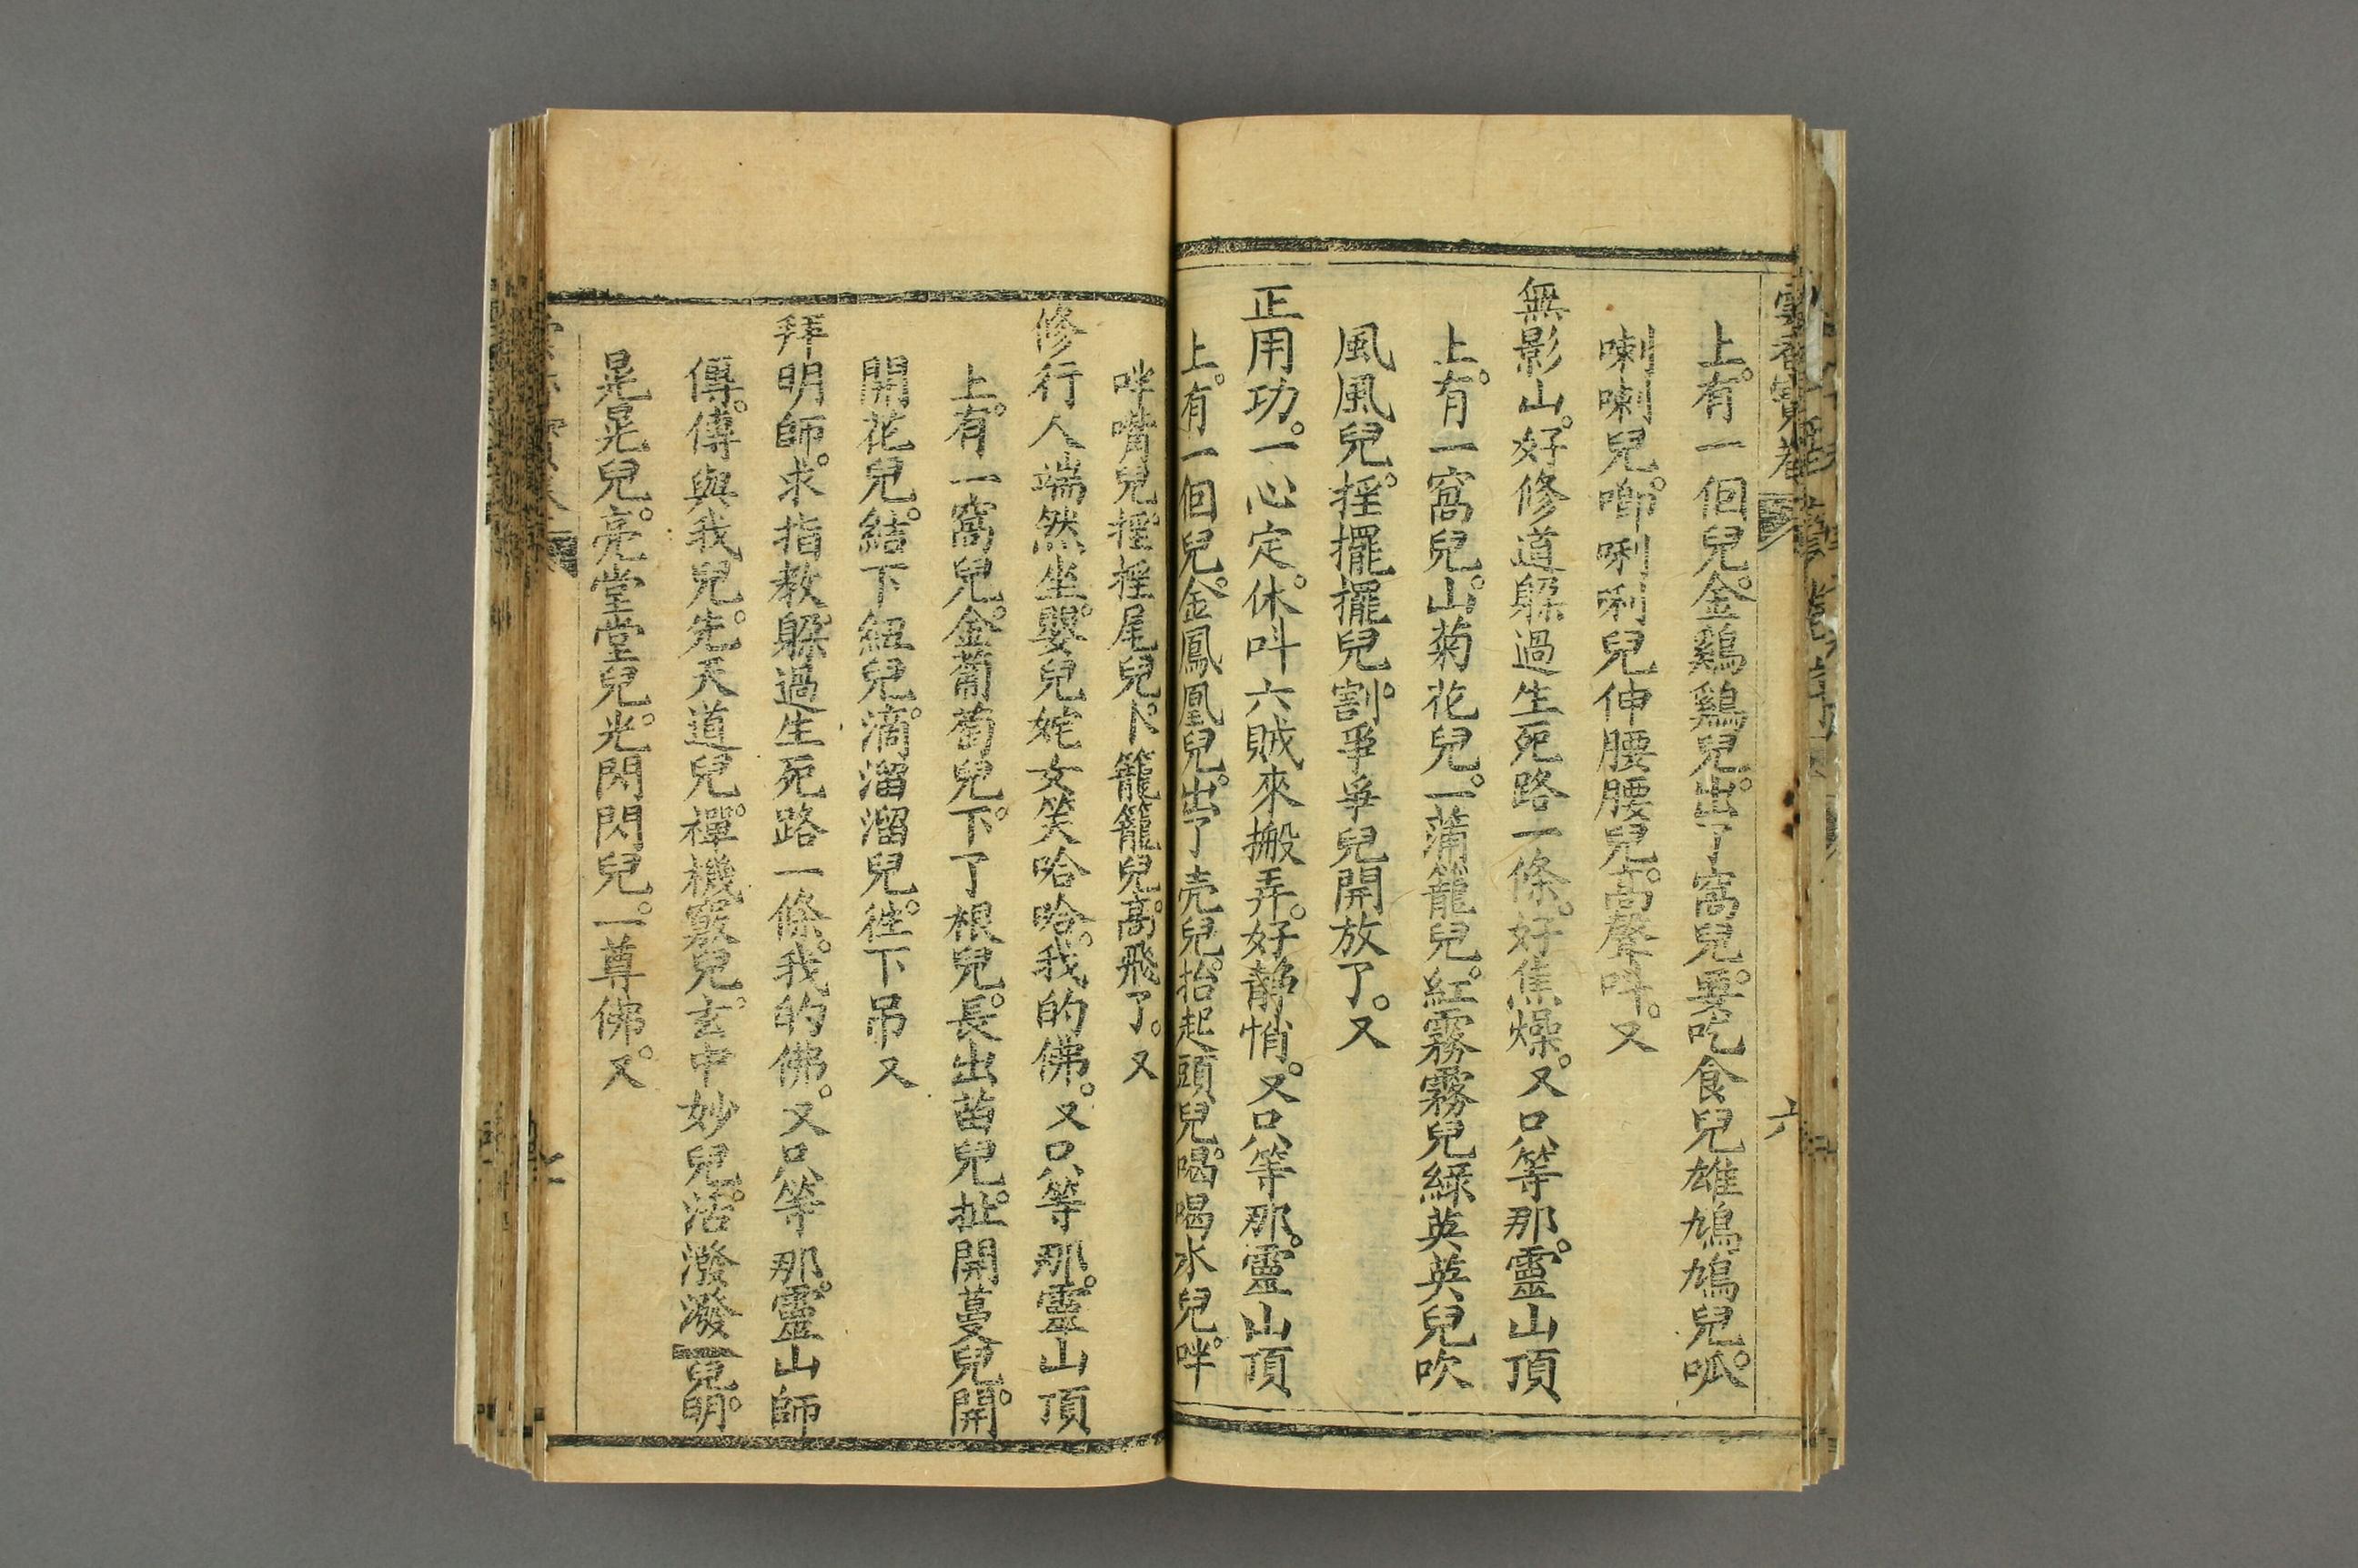 六
上。有一個兒。金鷄鷄兒。出了窩兒。要吃食兒雄鳩鳩兒。呱
喇喇兒。唧唎唎兒伸腰腰兒。高聲呌。又
無影山。好修道躱過生死路一條。好焦燥。又只等那。靈山頂
上。有一窩兒。山菊花兒。一蒲籠兒。紅霧霧兒綠英英兒吹
風風兒。揺擺擺兒。割爭爭兒開放了。又
正用功。一心定。休呌六賊來搬弄。好静悄。又只等那。靈山頂
上。有一個兒。金鳳凰兒。出了壳兒。抬起頭兒。喝喝水兒。咩
咩嘴兒。揺揺尾兒。卜籠籠兒。高飛了。又
修行人端然坐。嬰兒姹女笑哈哈。我的佛。又只等那。靈山頂
上。有一窩兒。金葡萄兒。下了根兒。長出苗兒。扯開蔓兒。開
開花兒。結下紐兒。滴溜溜兒。徃下吊又
拜明師。求指教。躱過生死路一條。我的佛。又只等那。靈山師
傳。傳與我兒。先天道兒。禪機竅兒。玄中妙兒。活潑潑兒。明
晃晃兒。亮堂堂兒。光閃閃兒。一尊佛。又